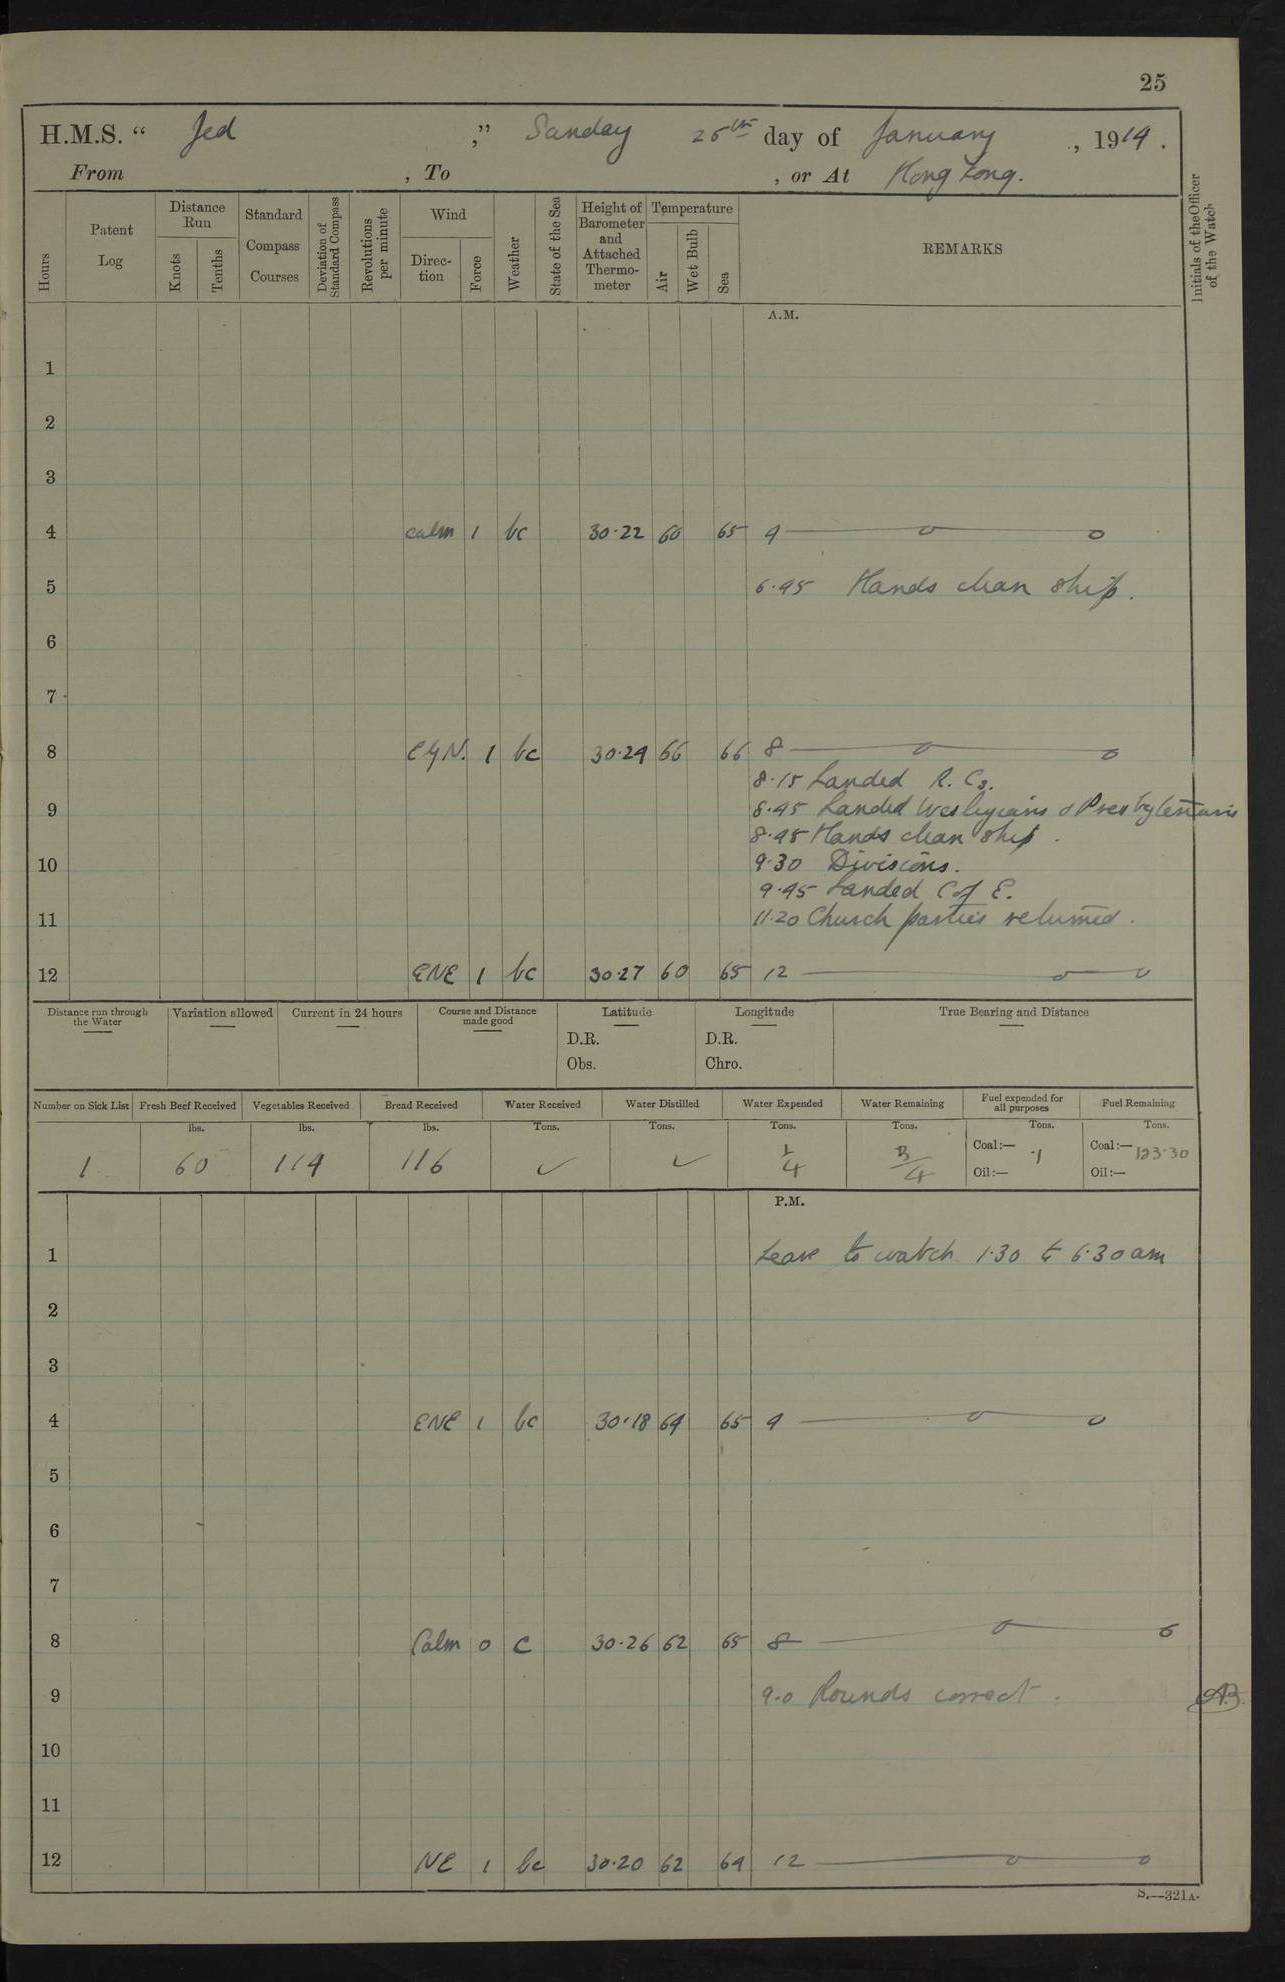 25
H.M.S. “ Jed ,” Sunday 25th day of January , 1914 .
From , To , or At Hong Kong.
Hours
Patent Log
Distance Run
Knots
Tenths
Standard Compass Courses
Deviation of Standard Compass
Revolutions per minute
Wind
Direction
Force
Weather
State of the Sea
Height of Barometer and Attached Thermometer
Temperature
Air
Wet Bulb
Sea
REMARKS
Initials of the Officer of the Watch
A.M.
1
2
3
4 calm 1 bc 30·22 60 65 4 —o—o
5 6·45 Hands clean ship.
6
7
8 E by N. 1 bc 30·24 66 66 8 —o—o
8·15 Landed R. Cs.
9 8·45 Landed Wesleyans & Presbyterians
8·45 Hands clean ship.
10 9·30 Divisions.
9·45 Landed C of E.
11 11·20 Church parties returned.
12 ENE 1 bc 30·27 60 65 12 —o—o
Distance run through the Water
Variation allowed
Current in 24 hours
Course and Distance made good
Latitude
Longitude
True Bearing and Distance
D.R. D.R.
Obs. Chro.
Number on Sick List
Fresh Beef Received
Vegetables Received
Bread Received
Water Received
Water Distilled
Water Expended
Water Remaining
Fuel expended for all purposes
Fuel Remaining
lbs. lbs. lbs. Tons. Tons. Tons. Tons. Tons. Tons.
1 60 114 116 ✓ ✓ 1/4 3/4 Coal:— ·1 Coal:— 123·30
Oil:— Oil:—
P.M.
1 Leave to watch 1·30 to 6·30 am
2
3
4 ENE 1 bc 30·18 64 65 4 —o—o
5
6
7
8 Calm 0 c 30·26 62 65 8 —o—o
9 9·0 Rounds correct. AB.
10
11
12 NE 1 bc 30·20 62 64 12 —o—o
S.—321A.